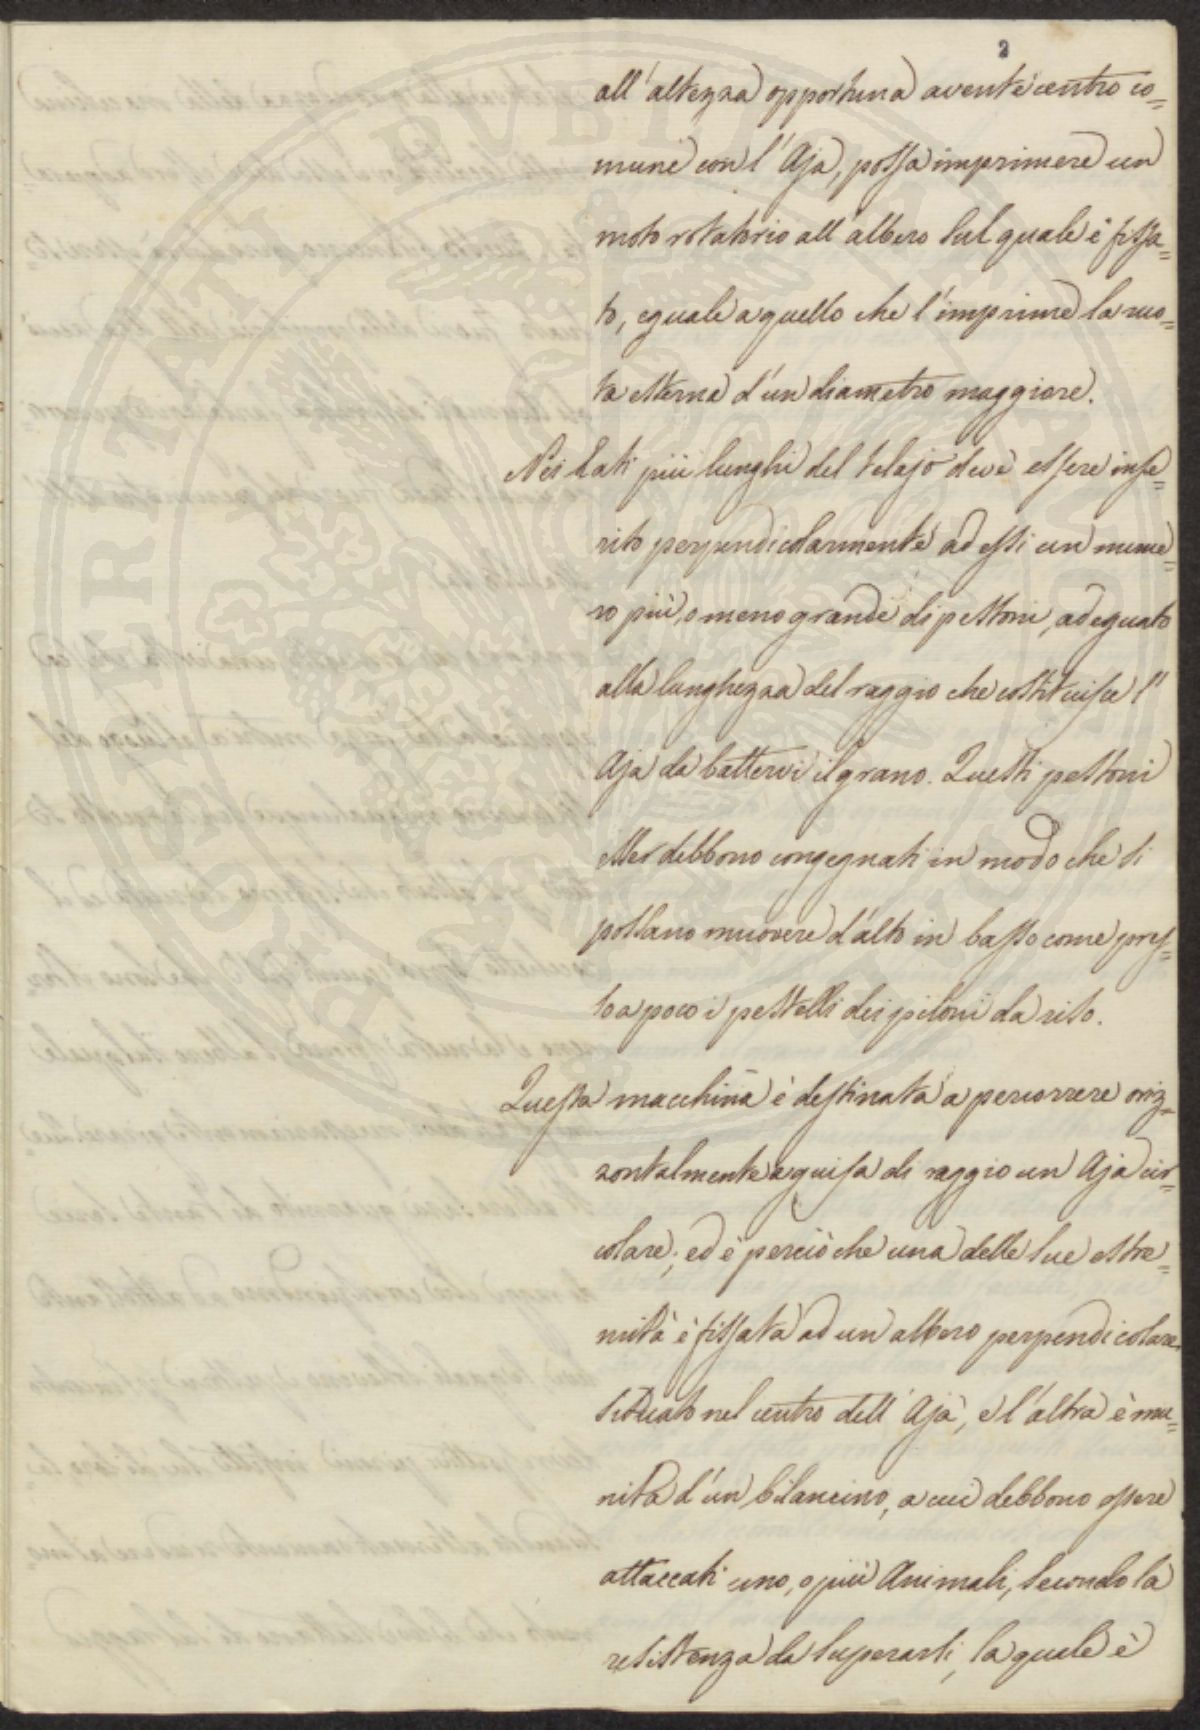 2
all'altezza opportuna avente centro co=
mune con l'Aja, possa imprimere un
moto rotatorio all'albero sul quale è fissa=
to, eguale a quello che l'imprime la ruo=
ta esterna d'un diametro maggiore.
Nei Lati più lunghi del telajo deve essere inse=
rito perpendicolarmente ad essi un nume=
ro più, o meno grande di pestoni, adeguato
alla lunghezza del raggio che costituisce l'
Aja da battervi il grano. Questi pestoni
esser debbono congegnati in modo che si
possano muovere d'alto in basso come pres=
so a poco i pestelli dei piloni da riso.
Questa macchina è destinata a percorrere oriz=
zontalmente a guisa di raggio un Aja cir=
colare; ed è perciò che una delle sue estre=
mità è fissata ad un albero perpendicolare
situato nel centro dell'Aja, e l'altra è mu=
nita d'un bilancino, a cui debbono essere
attaccati uno, o più Animali, secondo la
resistenza da superarsi, la quale è